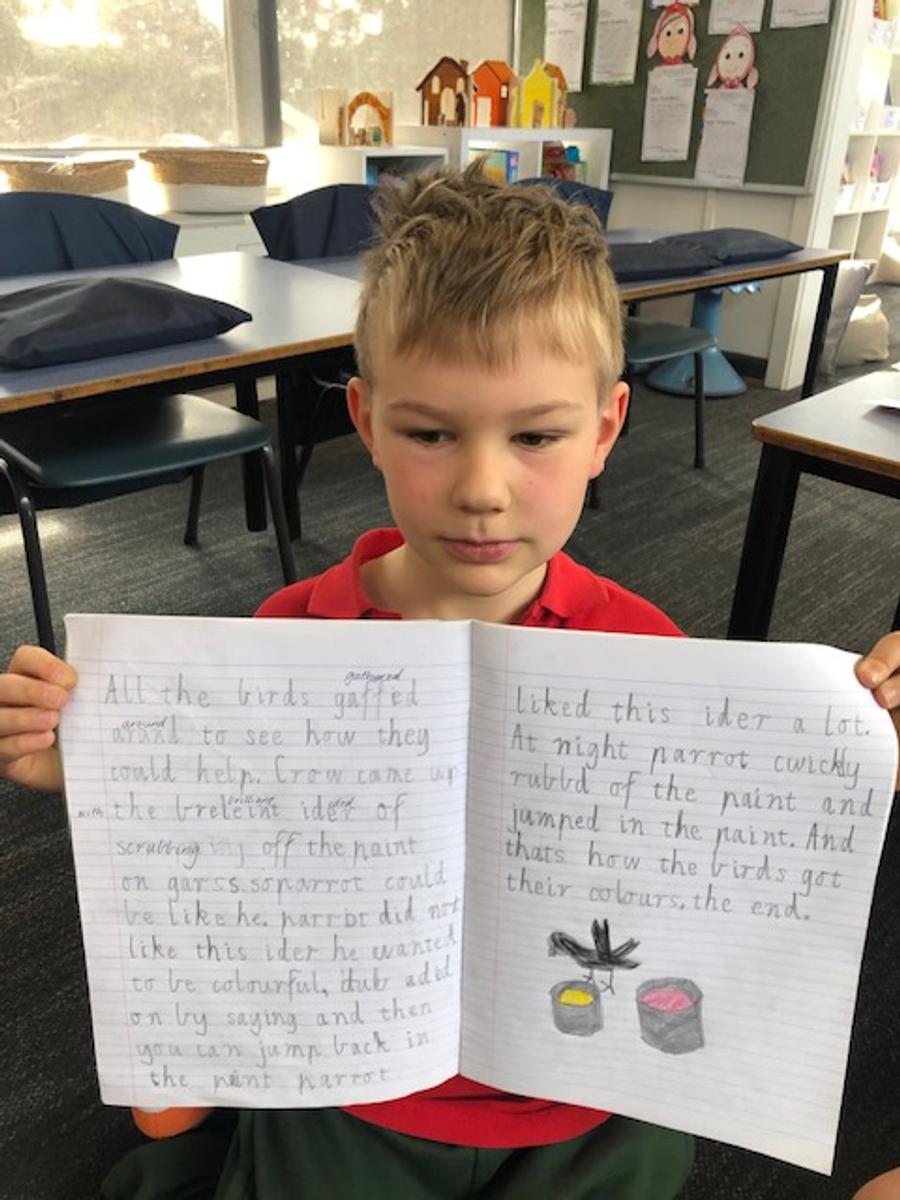 gathered
All the birds gaffed
around
arand to see how they
could help. Crow came up
with the breleint ider of
brilliant idea
scrubbing off the paint
on garss. so parrot could
be like he. parrot did not
like this ider he wanted
to be colourful, dub aded
on by saying and then
you can jump back in
the paint parrot
liked this ider a lot.
At night parrot cwickly
rubbd of the paint and
jumped in the paint. And
thats how the birds got
their colours. the end.